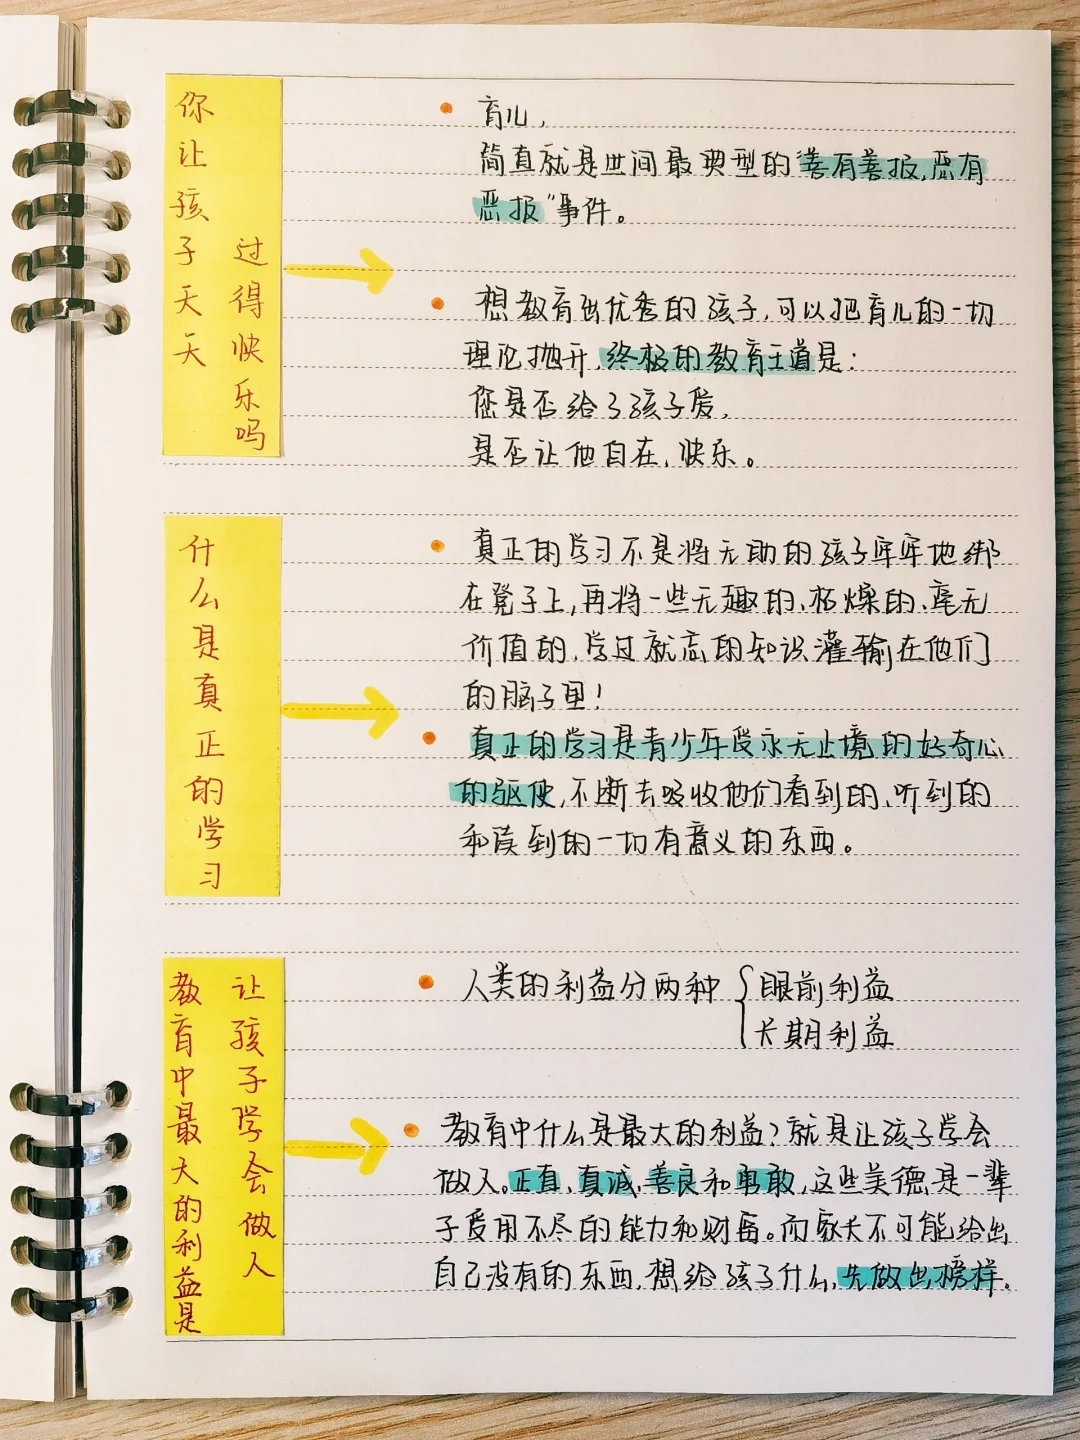 你让孩子天天
过得快乐吗
育儿,
简直就是世间最典型的“善有善报,恶有
恶报”事件。
想教育出优秀的孩子,可以把育儿的一切
理论抛开,终极的教育王道是:
您是否给了孩子爱,
是否让他自在、快乐。
什么是真正的学习
真正的学习不是将无助的孩子牢牢地绑
在凳子上,再将一些无趣的、枯燥的、毫无
价值的、学过就忘的知识灌输在他们
的脑子里!
真正的学习是青少年受永无止境的好奇心
的驱使,不断去吸收他们看到的、听到的
和读到的一切有意义的东西。
教育中最大的利益是
让孩子学会做人
人类的利益分两种{眼前利益
长期利益
教育中什么是最大的利益?就是让孩子学会
做人。正直、真诚、善良和勇敢,这些美德是一辈
子受用不尽的能力和财富。而家长不可能给出
自己没有的东西,想给孩子什么,先做出榜样。